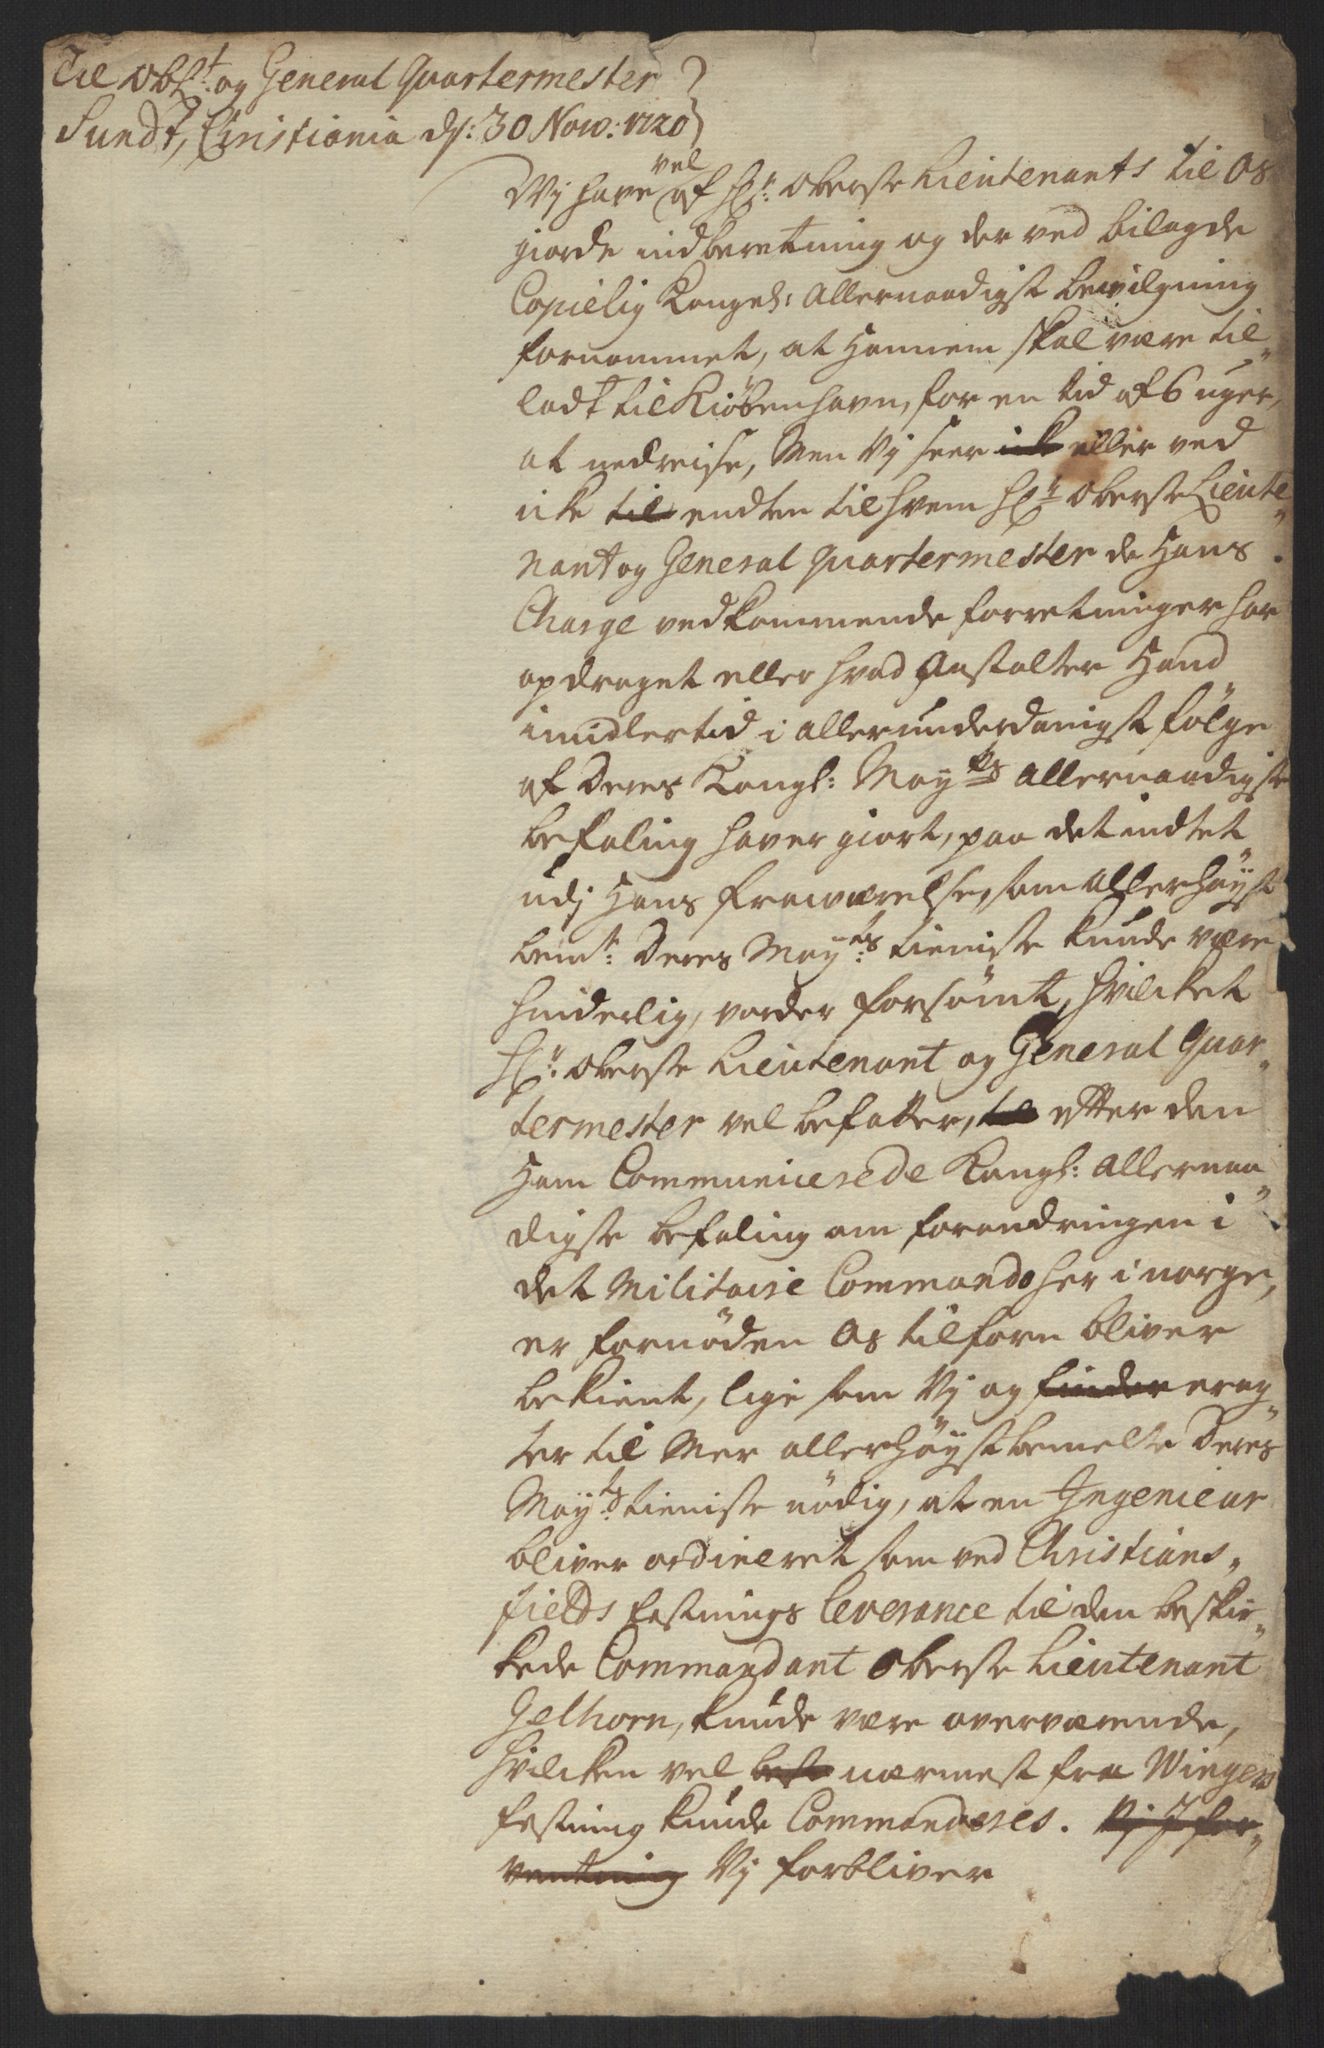 Til Obl:t og General Quartermester
Sundt, Christiania d: 30 Nov: 1720
vel
Wij have af Hr: Oberste Lieutenants til Os
giorde indberetning og der ved bilagde
Copielig Kongel: Allernaadigst bevilgning
fornommet, at Hannem skal være til„
ladt til Kiöbenhavn, for en tid af 6 uger,
at nedreise, Men Vj seer ick eller ved
icke til endten til hvem Hr: Oberste Lieute„
nant og General Quartermester de Hans
Charge vedkommende forretninger har
opdraget eller hvad Anstalter Hand
imidlertid i allerunderdanigst fölge
af Deres Kongl: Mayts allernaadigste
befaling haver giort, paa det indtet
udj Hans fraværelse, som allerhöyst
bemte: Deres Mayts: tieniste kunde være
hinderlig, vorder forsömt, hvilcket
Hr: Oberste Lieutenant og General Quar„
termester vel befatter, til efter den
Ham Communicerede Kongl: allernaa„
digste befaling om forandringen i
det Militaire Commando her i norge,
er fornöden Os tilforn bliver
bekient, lige som Vj og finder erag„
ter til Mer allerhöystbemelte Deres
Mayts: tieniste nödig, at en Ingenieur
bliver ordineret som ved Christians„
fields festnings leverance til den beskic„
kede Commandant Oberste Lieutenant
Gelhorn, kunde være overværende,
hvilcken vel best nærmest fra Wingers
festning kunde Commanderes. Vj I for„
ventning Vj forbliver